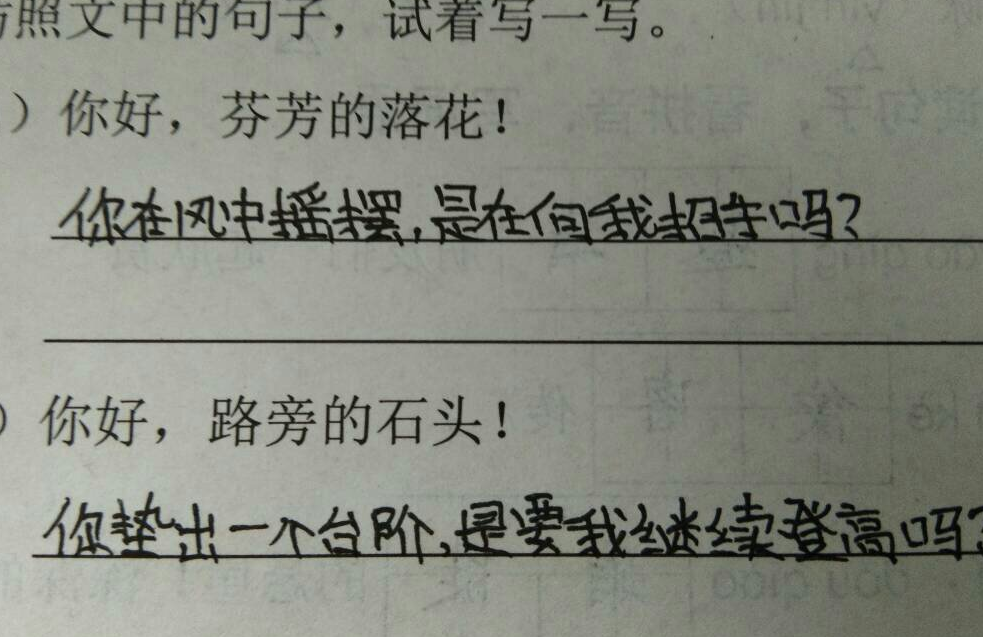 照文中的句子，试着写一写。
）你好，芬芳的落花！
你在风中摇摆，是在向我招手吗？
）你好，路旁的石头！
你垫出一个台阶，是要我继续登高吗？